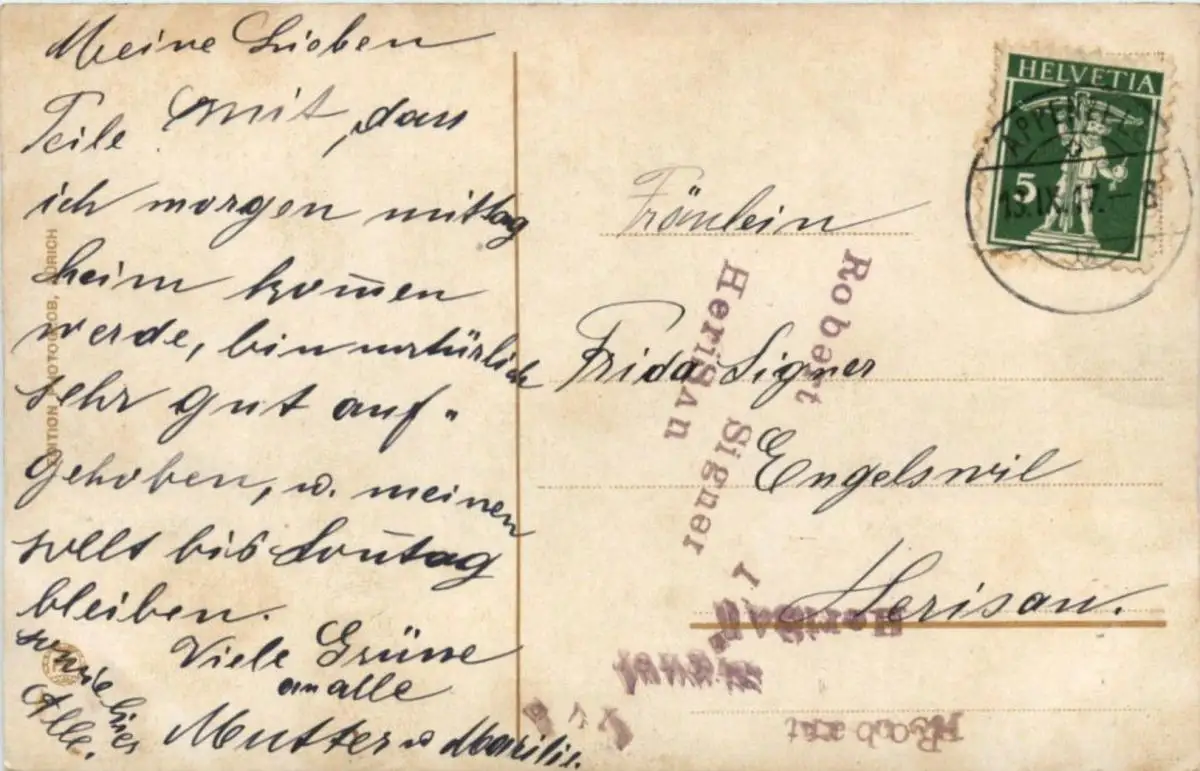 Meine Lieben
Teile mit, dass
ich morgen mittag
heim kom̅en
werde, bin natürlich
sehr gut auf-
gehoben, u. meinen
sollt bis Son̅tag
bleiben.
Viele Grüsse
an alle
Mutter u
sowie hier
Alle.
EDITION PHOTOGLOB, ZÜRICH
HELVETIA
5
APPENZELL
13.IX.17.
Fräulein
Frida Signer
Engelswil
Herisau.
Robert Signer
Herisau